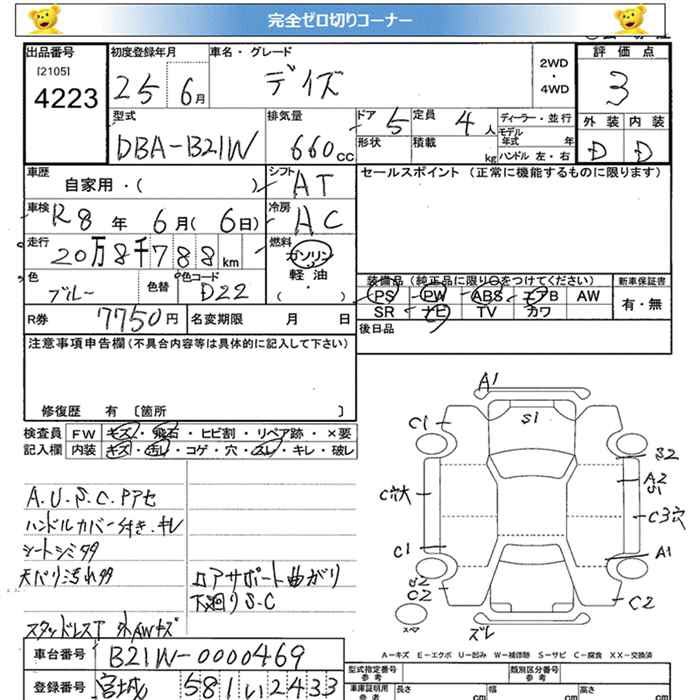 完全ゼロ切りコーナー
出品番号 初度登録年月 車名・グレード 2WD・4WD 評価点
[2105]
4223 25 6月 デイズ 3
型式 排気量 ドア 5 定員 4人 ディーラー・並行 外装 内装
DBA-B21W 660cc 形状 積載 kg モデル年式 年 D D
ハンドル 左・右
車歴 自家用・( ) シフト AT セールスポイント (正常に機能するものに限ります)
車検 R8年 6月( 6日) 冷房 AC
走行 20万8千788km 燃料 ガソリン
軽油
( ・ )
色 ブルー 色替 色コード D22
装備品(純正品に限り○をつけてください) 新車保証書
PS PW ABS エアB AW 有・無
SR ナビ TV カワ
R券 7750円 名変期限 月 日 後日品
注意事項申告欄(不具合内容等は具体的に記入して下さい)
修復歴 有 〔箇所 〕
検査員 FW キズ・飛石・ヒビ割・リペア跡・×要
記入欄 内装 キズ・汚レ・コゲ・穴・スレ・キレ・破レ
A.U.S.C.Pアセ
ハンドルカバー付き.キレ
シートシミ多々
天バリ汚れ多々
ロアサポート曲がり
下廻りS.C
スタッドレスT 外AWキズ
A1
S1
C1
S2
A2
S1
C穴大
C3穴
C1
A1
S2
C2
C2
スペア
ズレ
A-キズ E-エクボ U-凹み W-補修跡 S-サビ C-腐食 XX-交換済
車台番号 B21W-0000469
登録番号 宮城 581 い 2433
型式指定番号 参考 類別区分番号 参考
車庫証明用 参考 長さ cm 幅 cm 高さ cm